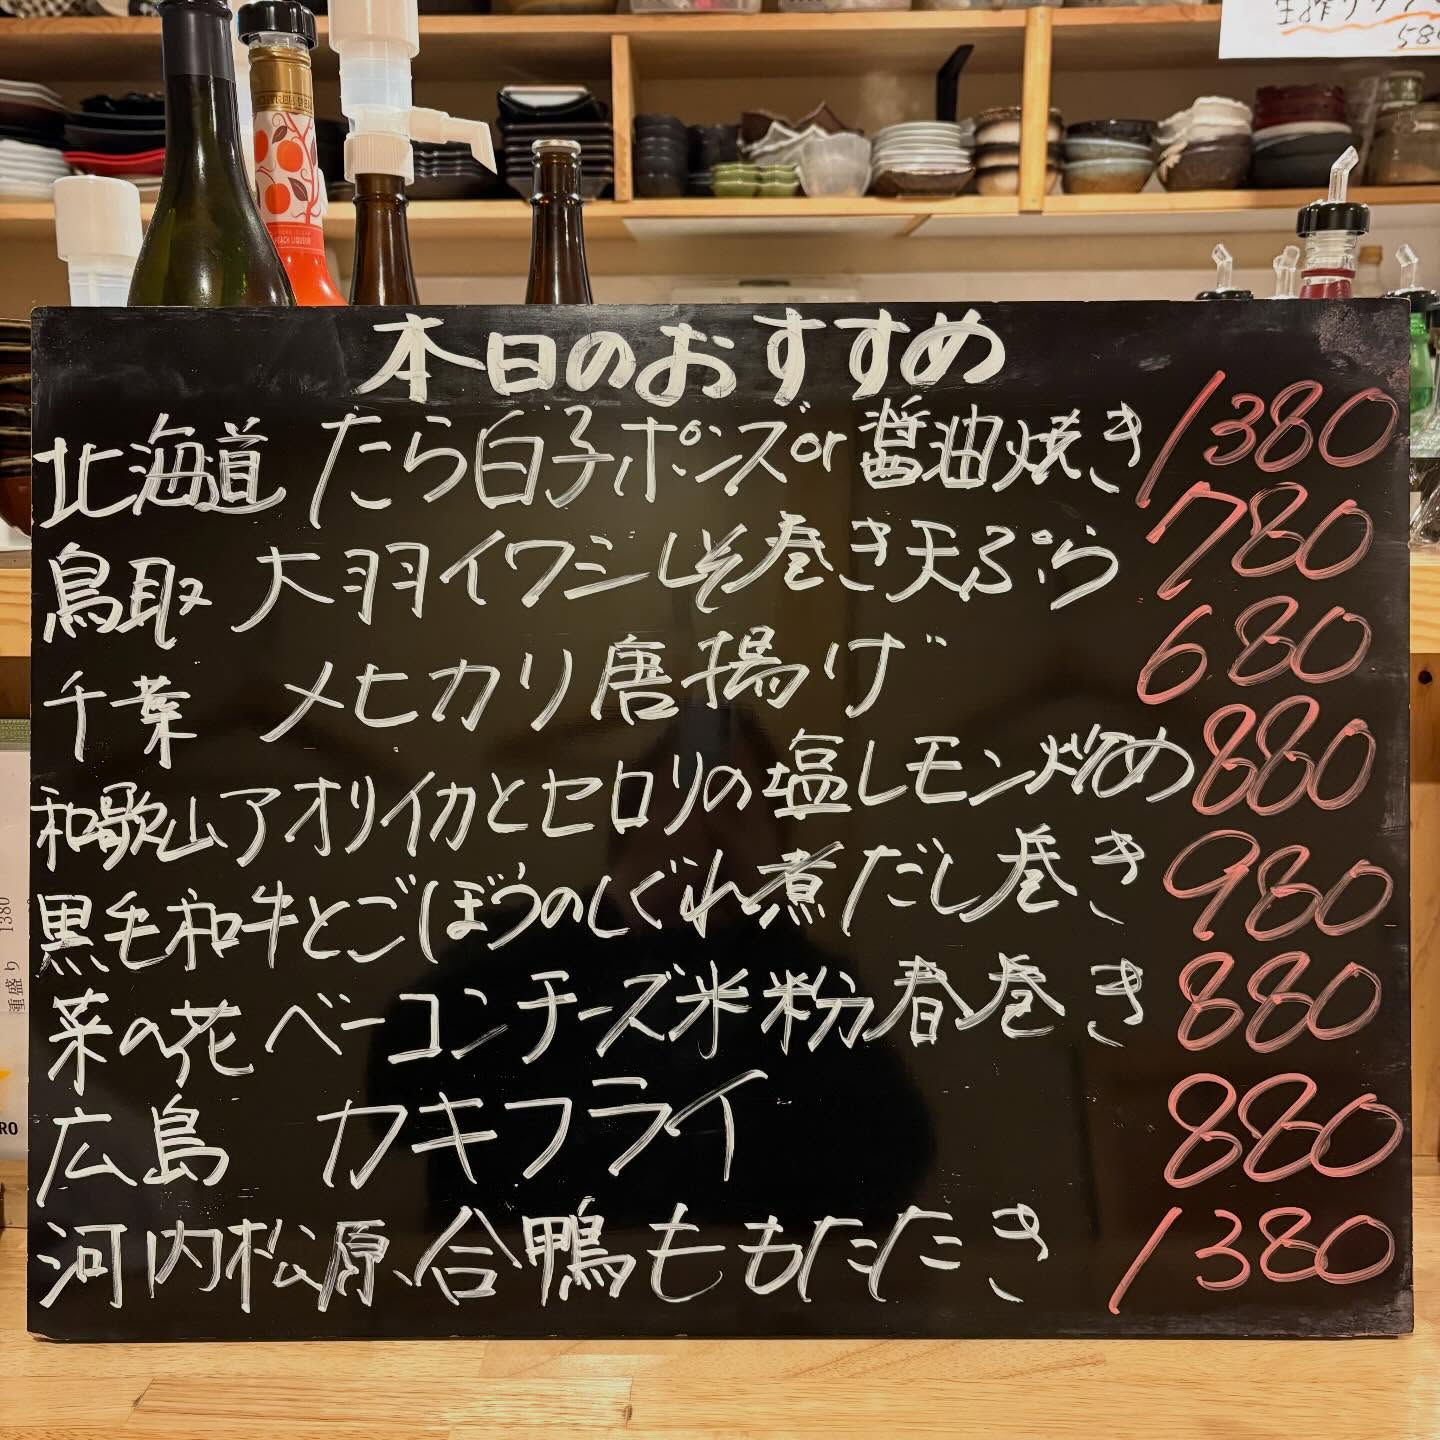 本日のおすすめ
北海道 たら白子ポンズor醤油焼き 1380
鳥取 大羽イワシしそ巻き天ぷら 780
千葉 メヒカリ唐揚げ 680
和歌山アオリイカとセロリの塩レモン炒め 880
黒毛和牛とごぼうのしぐれ煮だし巻き 980
菜の花ベーコンチーズ米粉春巻き 880
広島 カキフライ 880
河内松原、合鴨ももたたき 1380
PEACH LIQUEUR
種盛り 1380
RO